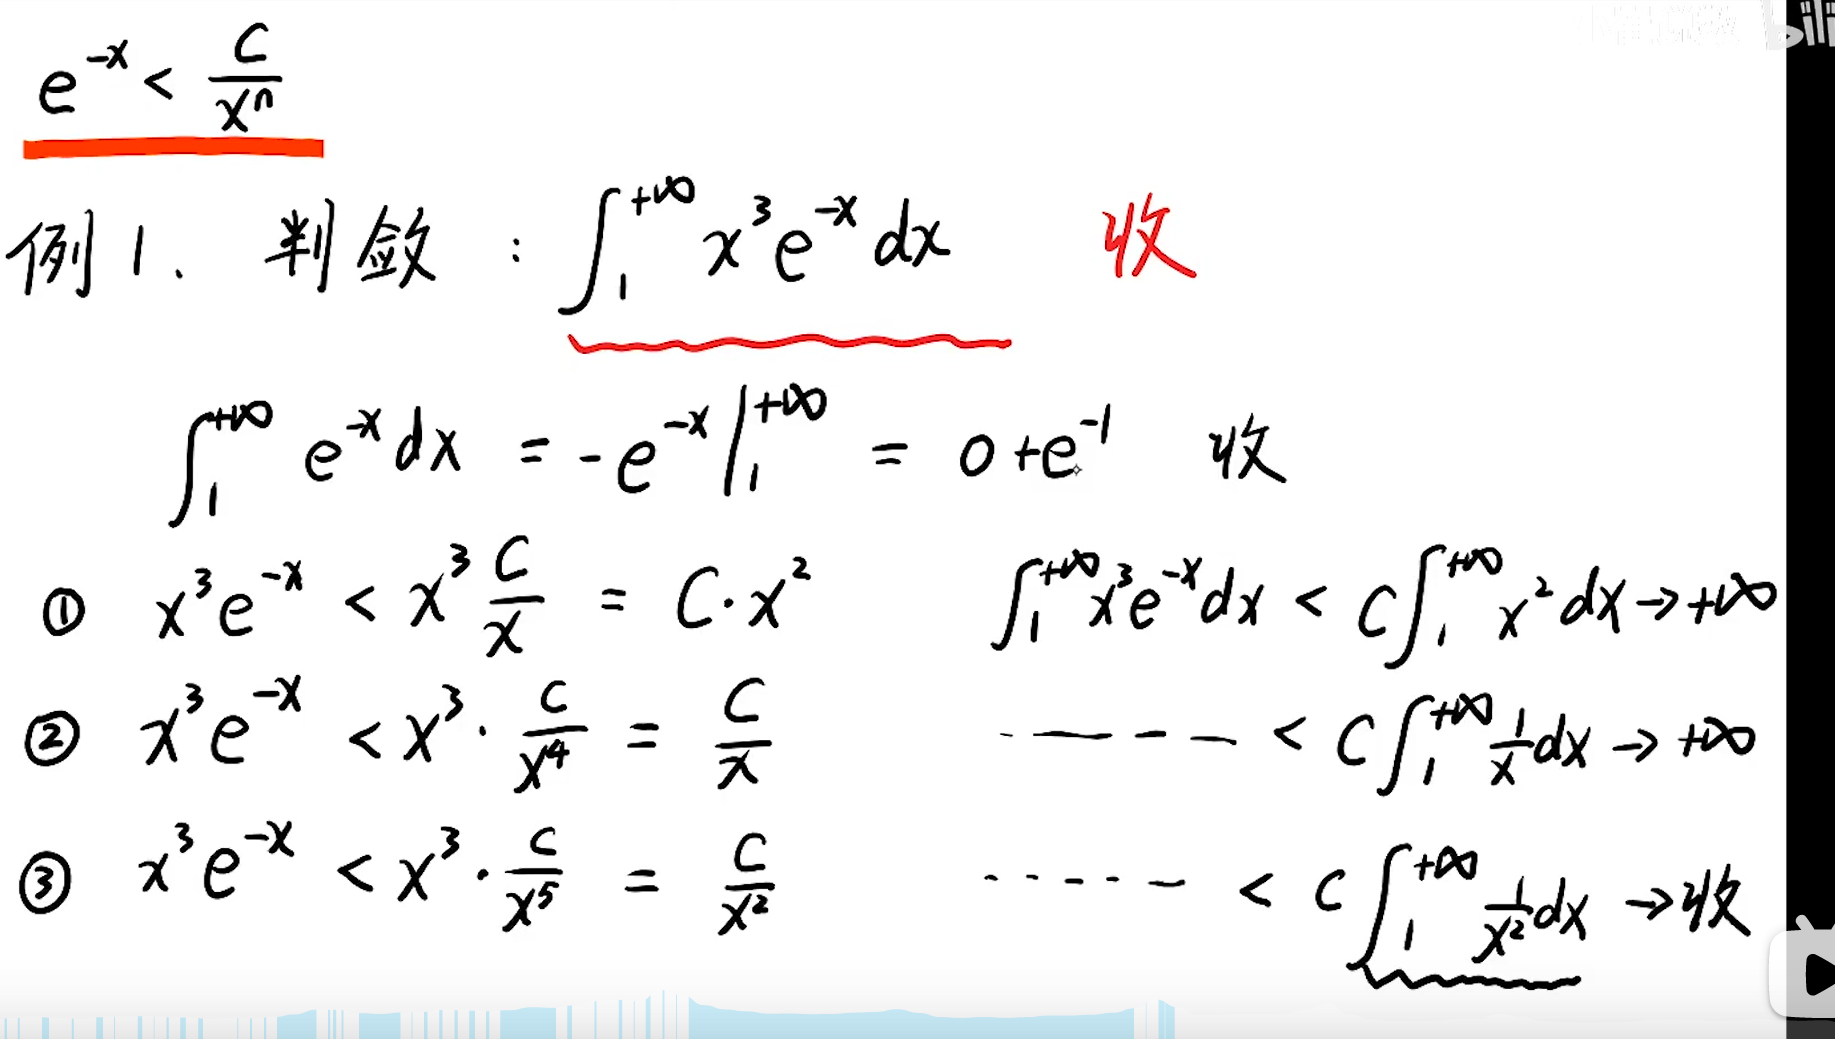 e^{-x} < \frac{C}{x^n}
例1. 判敛 : \int_1^{+\infty} x^3 e^{-x} dx 收
\int_1^{+\infty} e^{-x} dx = -e^{-x} |_1^{+\infty} = 0 + e^{-1} 收
① x^3 e^{-x} < x^3 \frac{C}{x} = C \cdot x^2 \int_1^{+\infty} x^3 e^{-x} dx < C \int_1^{+\infty} x^2 dx → +\infty
② x^3 e^{-x} < x^3 \cdot \frac{C}{x^4} = \frac{C}{x} ------ < C \int_1^{+\infty} \frac{1}{x} dx → +\infty
③ x^3 e^{-x} < x^3 \cdot \frac{C}{x^5} = \frac{C}{x^2} ------ < C \int_1^{+\infty} \frac{1}{x^2} dx → 收